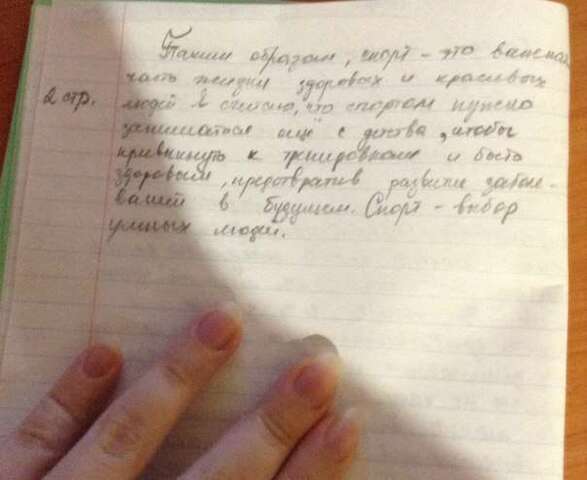 Таким образом, спорт - это важная
часть жизни здоровых и красивых
2 стр. людей. Я считаю, что спортом нужно
заниматься ещё с детства, чтобы
привыкнуть к тренировкам и быть
здоровым, предотвратив развитие заболе-
ваний в будущем. Спорт - выбор
умных людей.